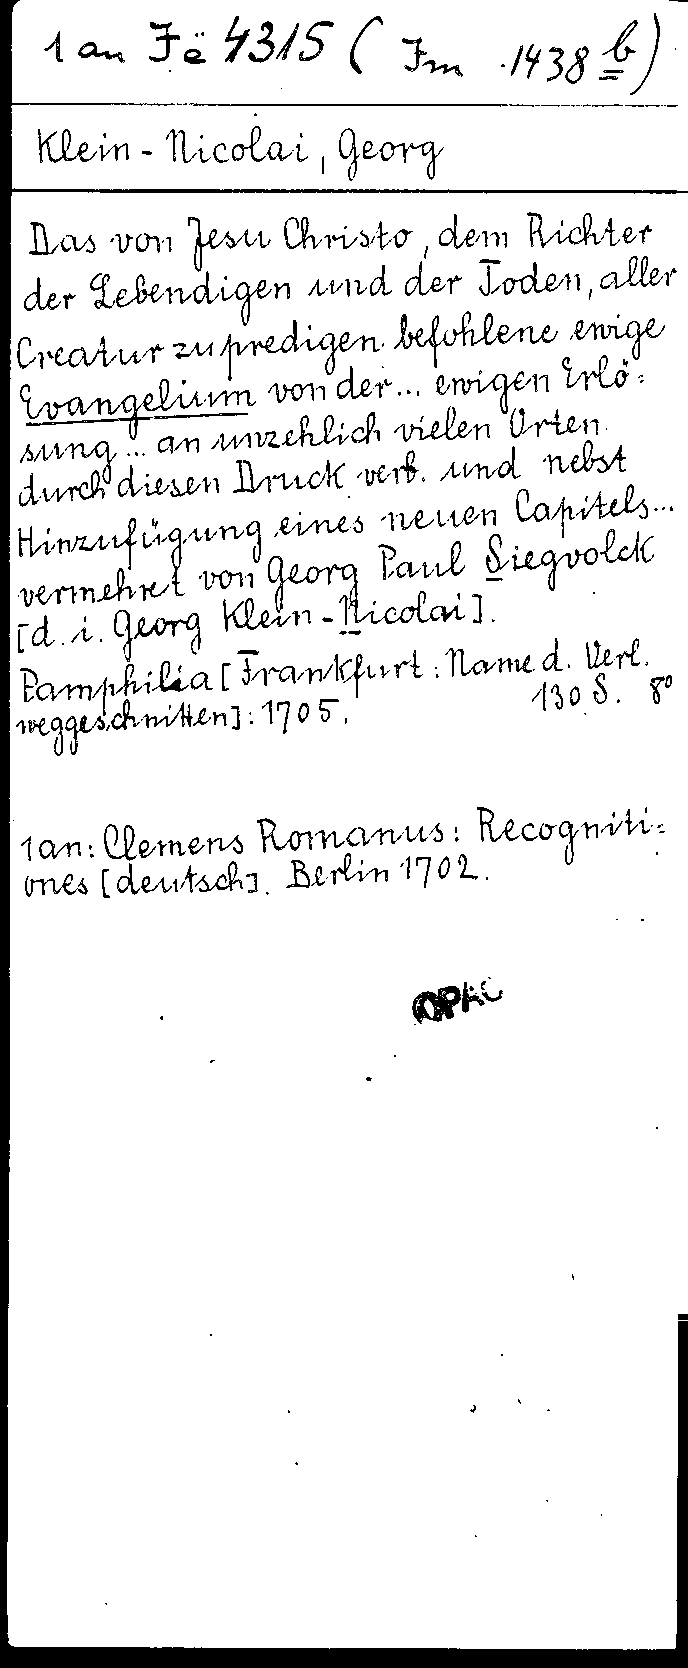 1 an Fë 4315 ( Fm 1438 b)
Klein-Nicolai, Georg
Das von Jesu Christo, dem Richter
der Lebendigen und der Toden, aller
Creatur zu predigen befohlene ewige
Evangelium von der... ewigen Erlö=
sung... an unzehlich vielen Orten
durch diesen Druck verb. und nebst
Hinzufügung eines neuen Capitels...
vermehret von Georg Paul Siegvolck
[d. i. Georg Klein-Nicolai].
Pamphilia [Frankfurt: Name d. Verl.
weggeschnitten]: 1705. 130 S. 8°
1an: Clemens Romanus: Recogniti=
ones [deutsch]. Berlin 1702.
OPAC